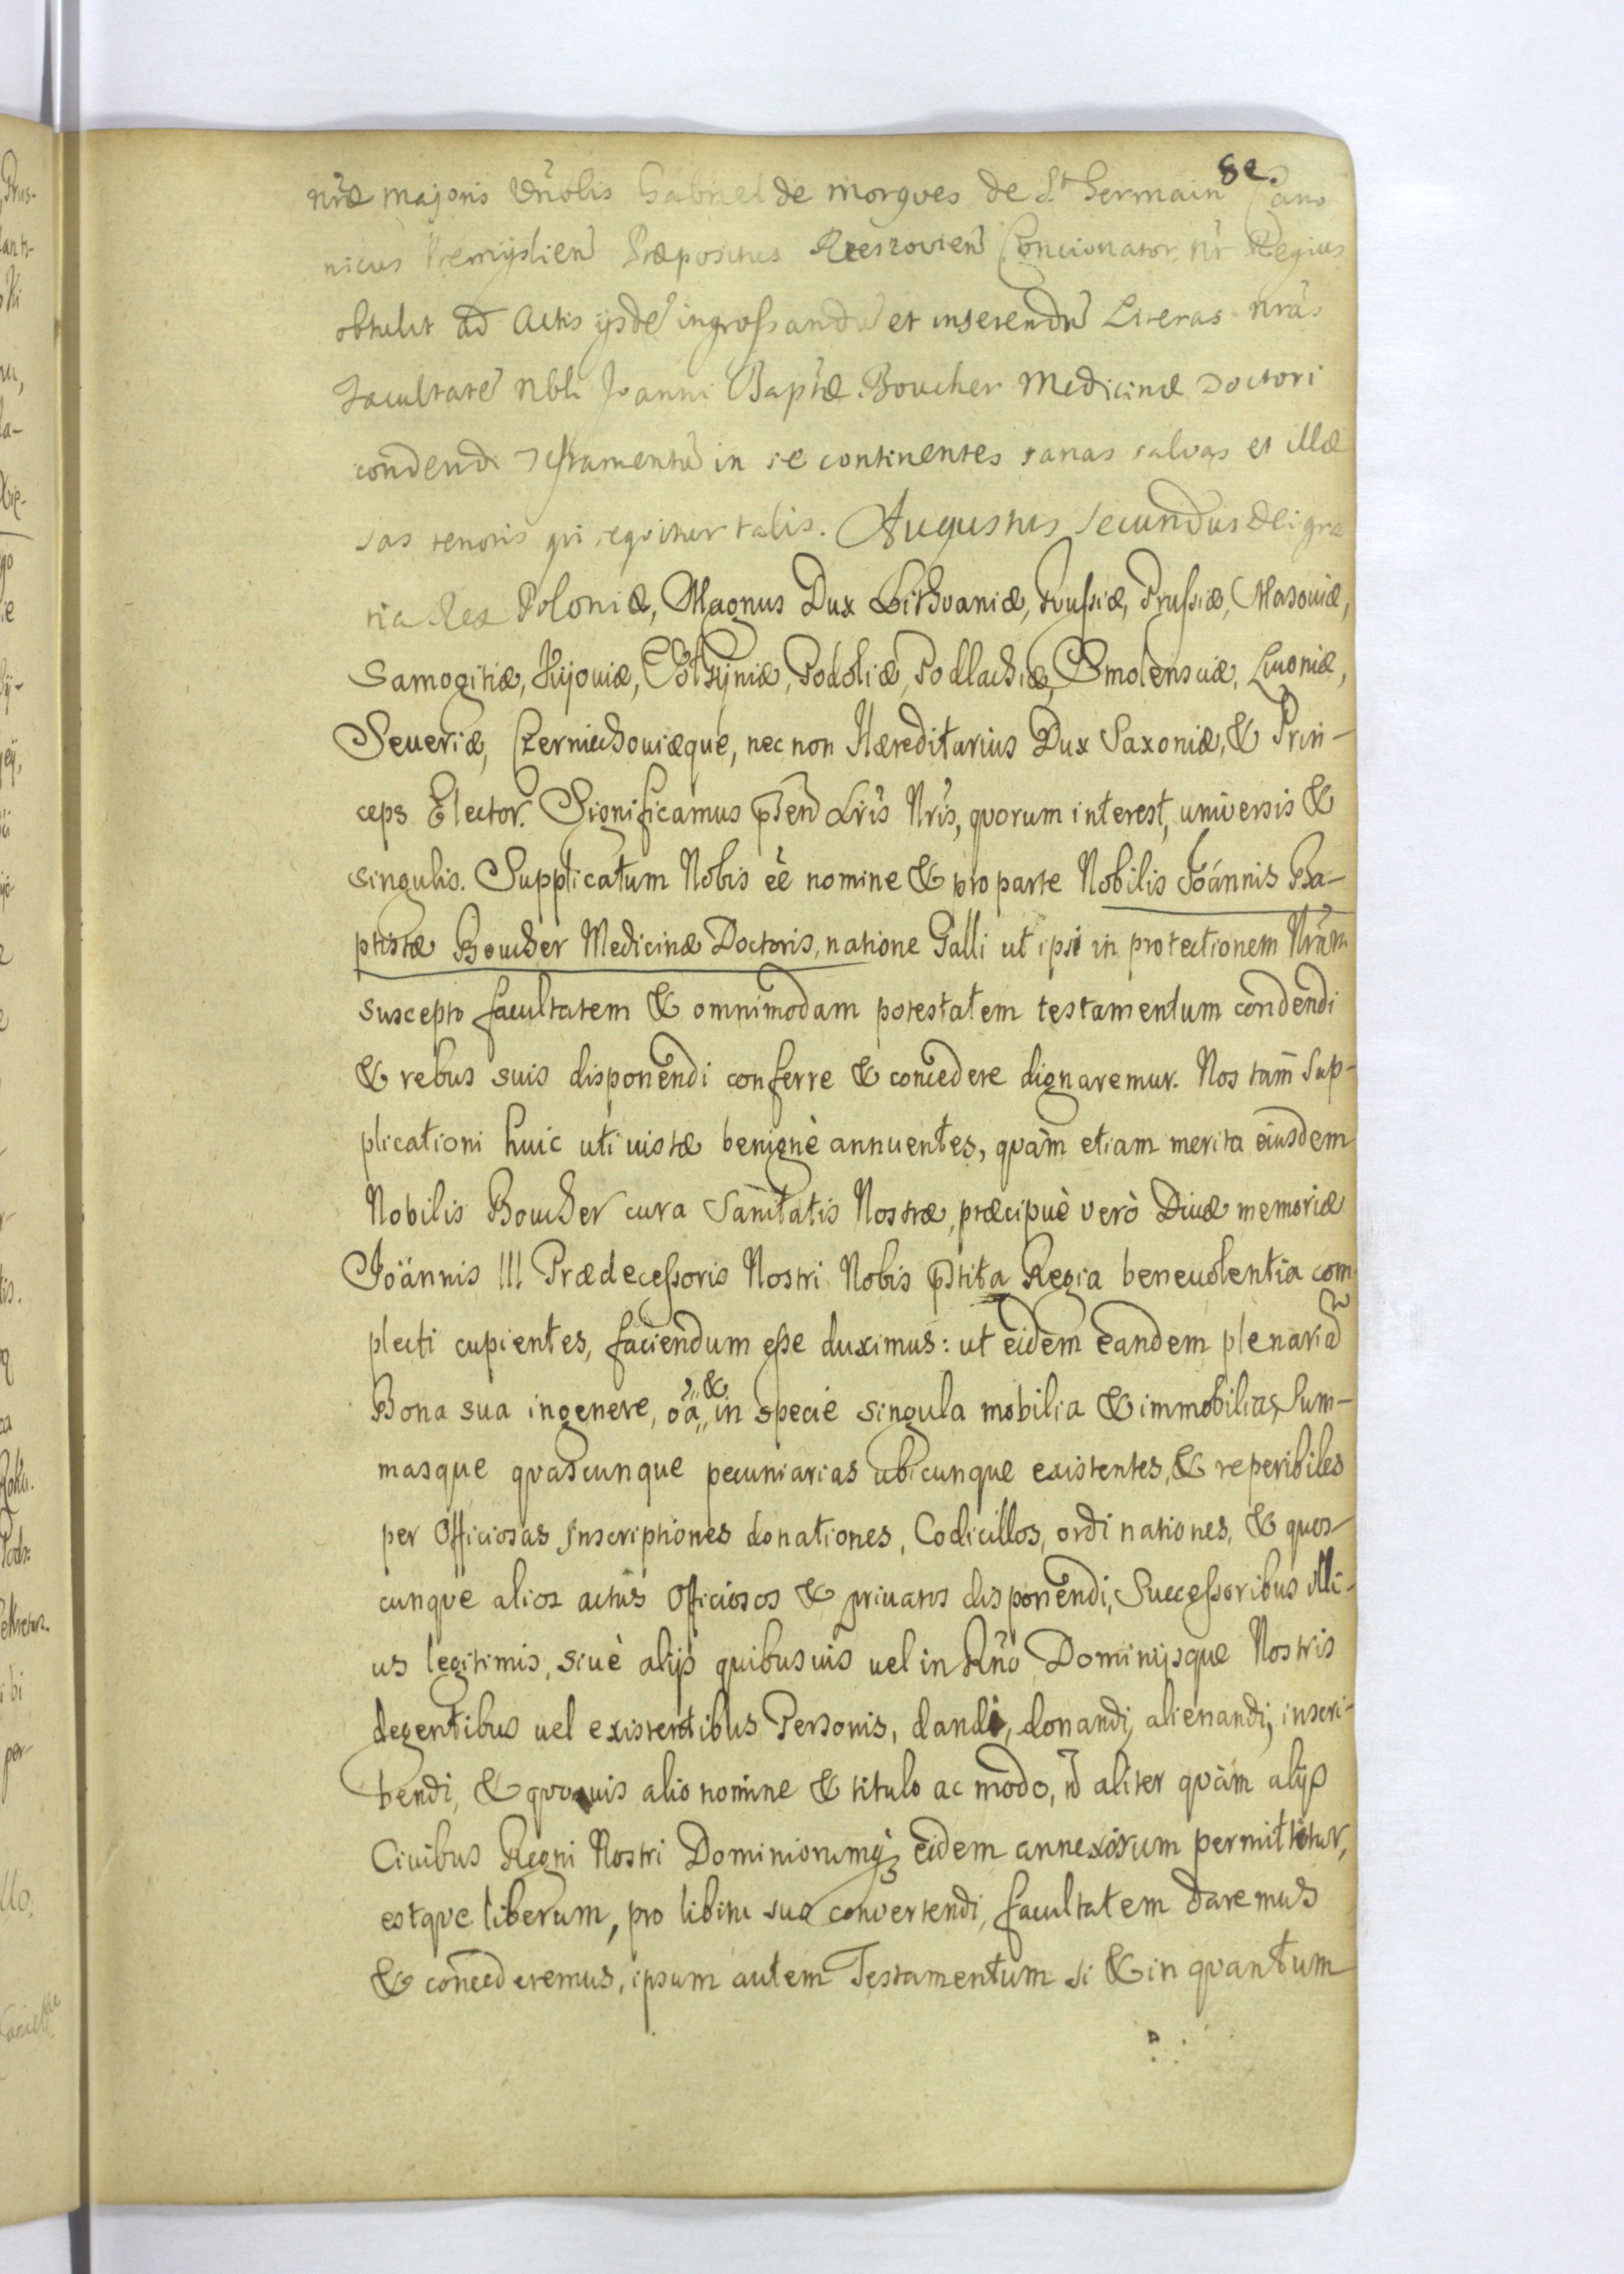 82.
nræ majoris Vnblis Gabriel de morgves de St Germain Cano
nicus Premyslien Præpositus Rzeszovien Concionator nr Regius
obtulit ad Actis ijsdē ingrossandū et inserendū Literas nrás
Facultatē Nbli Joanni Baptæ Boucher Medicinæ Doctori
condendi Testamentū in se continentes sanas salvas et illæ
sas tenoris qvi seqvitur talis. Augustus Secundus Dei gra
tia Rex Poloniæ, Magnus Dux Lithvaniæ, Russiæ, Prussiæ, Masoviæ,
Samogitiæ, Kijoviæ, Volhÿniæ, Podoliæ, Podlachiæ, Smolensciæ, Livoniæ,
Seueriæ, Czerniechouiæque, nec non Hæreditarius Dux Saxoniæ, & Prin-
ceps Elector. Significamus pñen Lris Nris, qvorum interest, universis &
singulis. Supplicatum Nobis eē nomine & pro parte Nobilis Joánnis Ba-
ptistæ Boucher Medicinæ Doctoris, natione Galli ut ipsi in protectionem Nrãm
suscepto facultatem & omnimodam potestatem testamentum condendi
& rebus suis disponendi conferre & concedere dignaremur. Nos tam̄ Sup-
plicationi huic uti iustæ benignè annuentes, qvàm etiam merita eiusdem
Nobilis Boucher cura Sanitatis Nostræ, præcipuè verò Diuæ memoriæ
Joännis III Prædecessoris Nostri Nobis pstita Regia beneuolentia com
plecti cupientes, faciendum esse duximus: ut eidem eandem plenariā
Bona sua ingenere, oā, & in specie singula mobilia & immobilia, Sum-
masque qvascunque pecuniarias ubicunque existentes, & reperibiles
per Officiosas Inscriptiones donationes, Codicillos, ordinationes, & quos-
cunque alios actus Officiosos & priuatos disponendi, Successoribus illi-
us legitimis, siuè alijs quibusuis uel in Rño Dominijsque Nostris
degentibus uel existentibus Personis, dandi, donandi, alienandi, inscri-
bendi, & qvouis alio nomine & titulo ac modo, nō aliter qvàm alijs
Ciuibus Regni Nostri Dominiorumq; eidem annexorum permittitur,
estqve liberum, pro libitu suo convertendi, facultatem daremus
& concederemus, ipsum autem Testamentum si & in qvantum